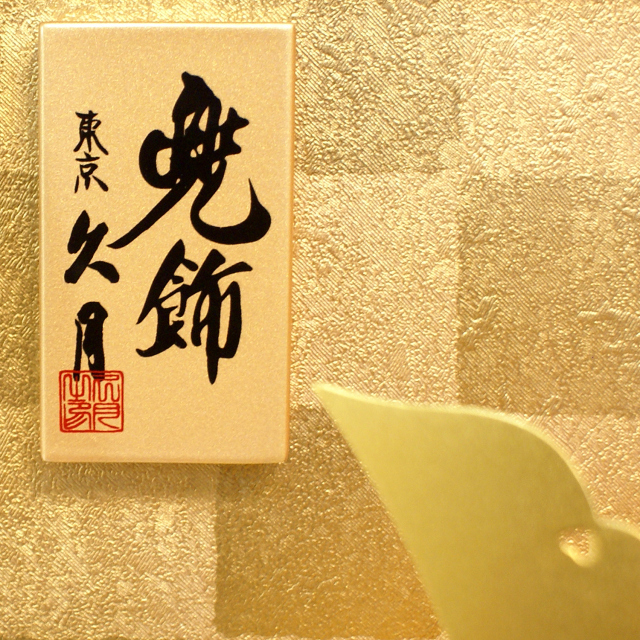 兜飾
東京
久月